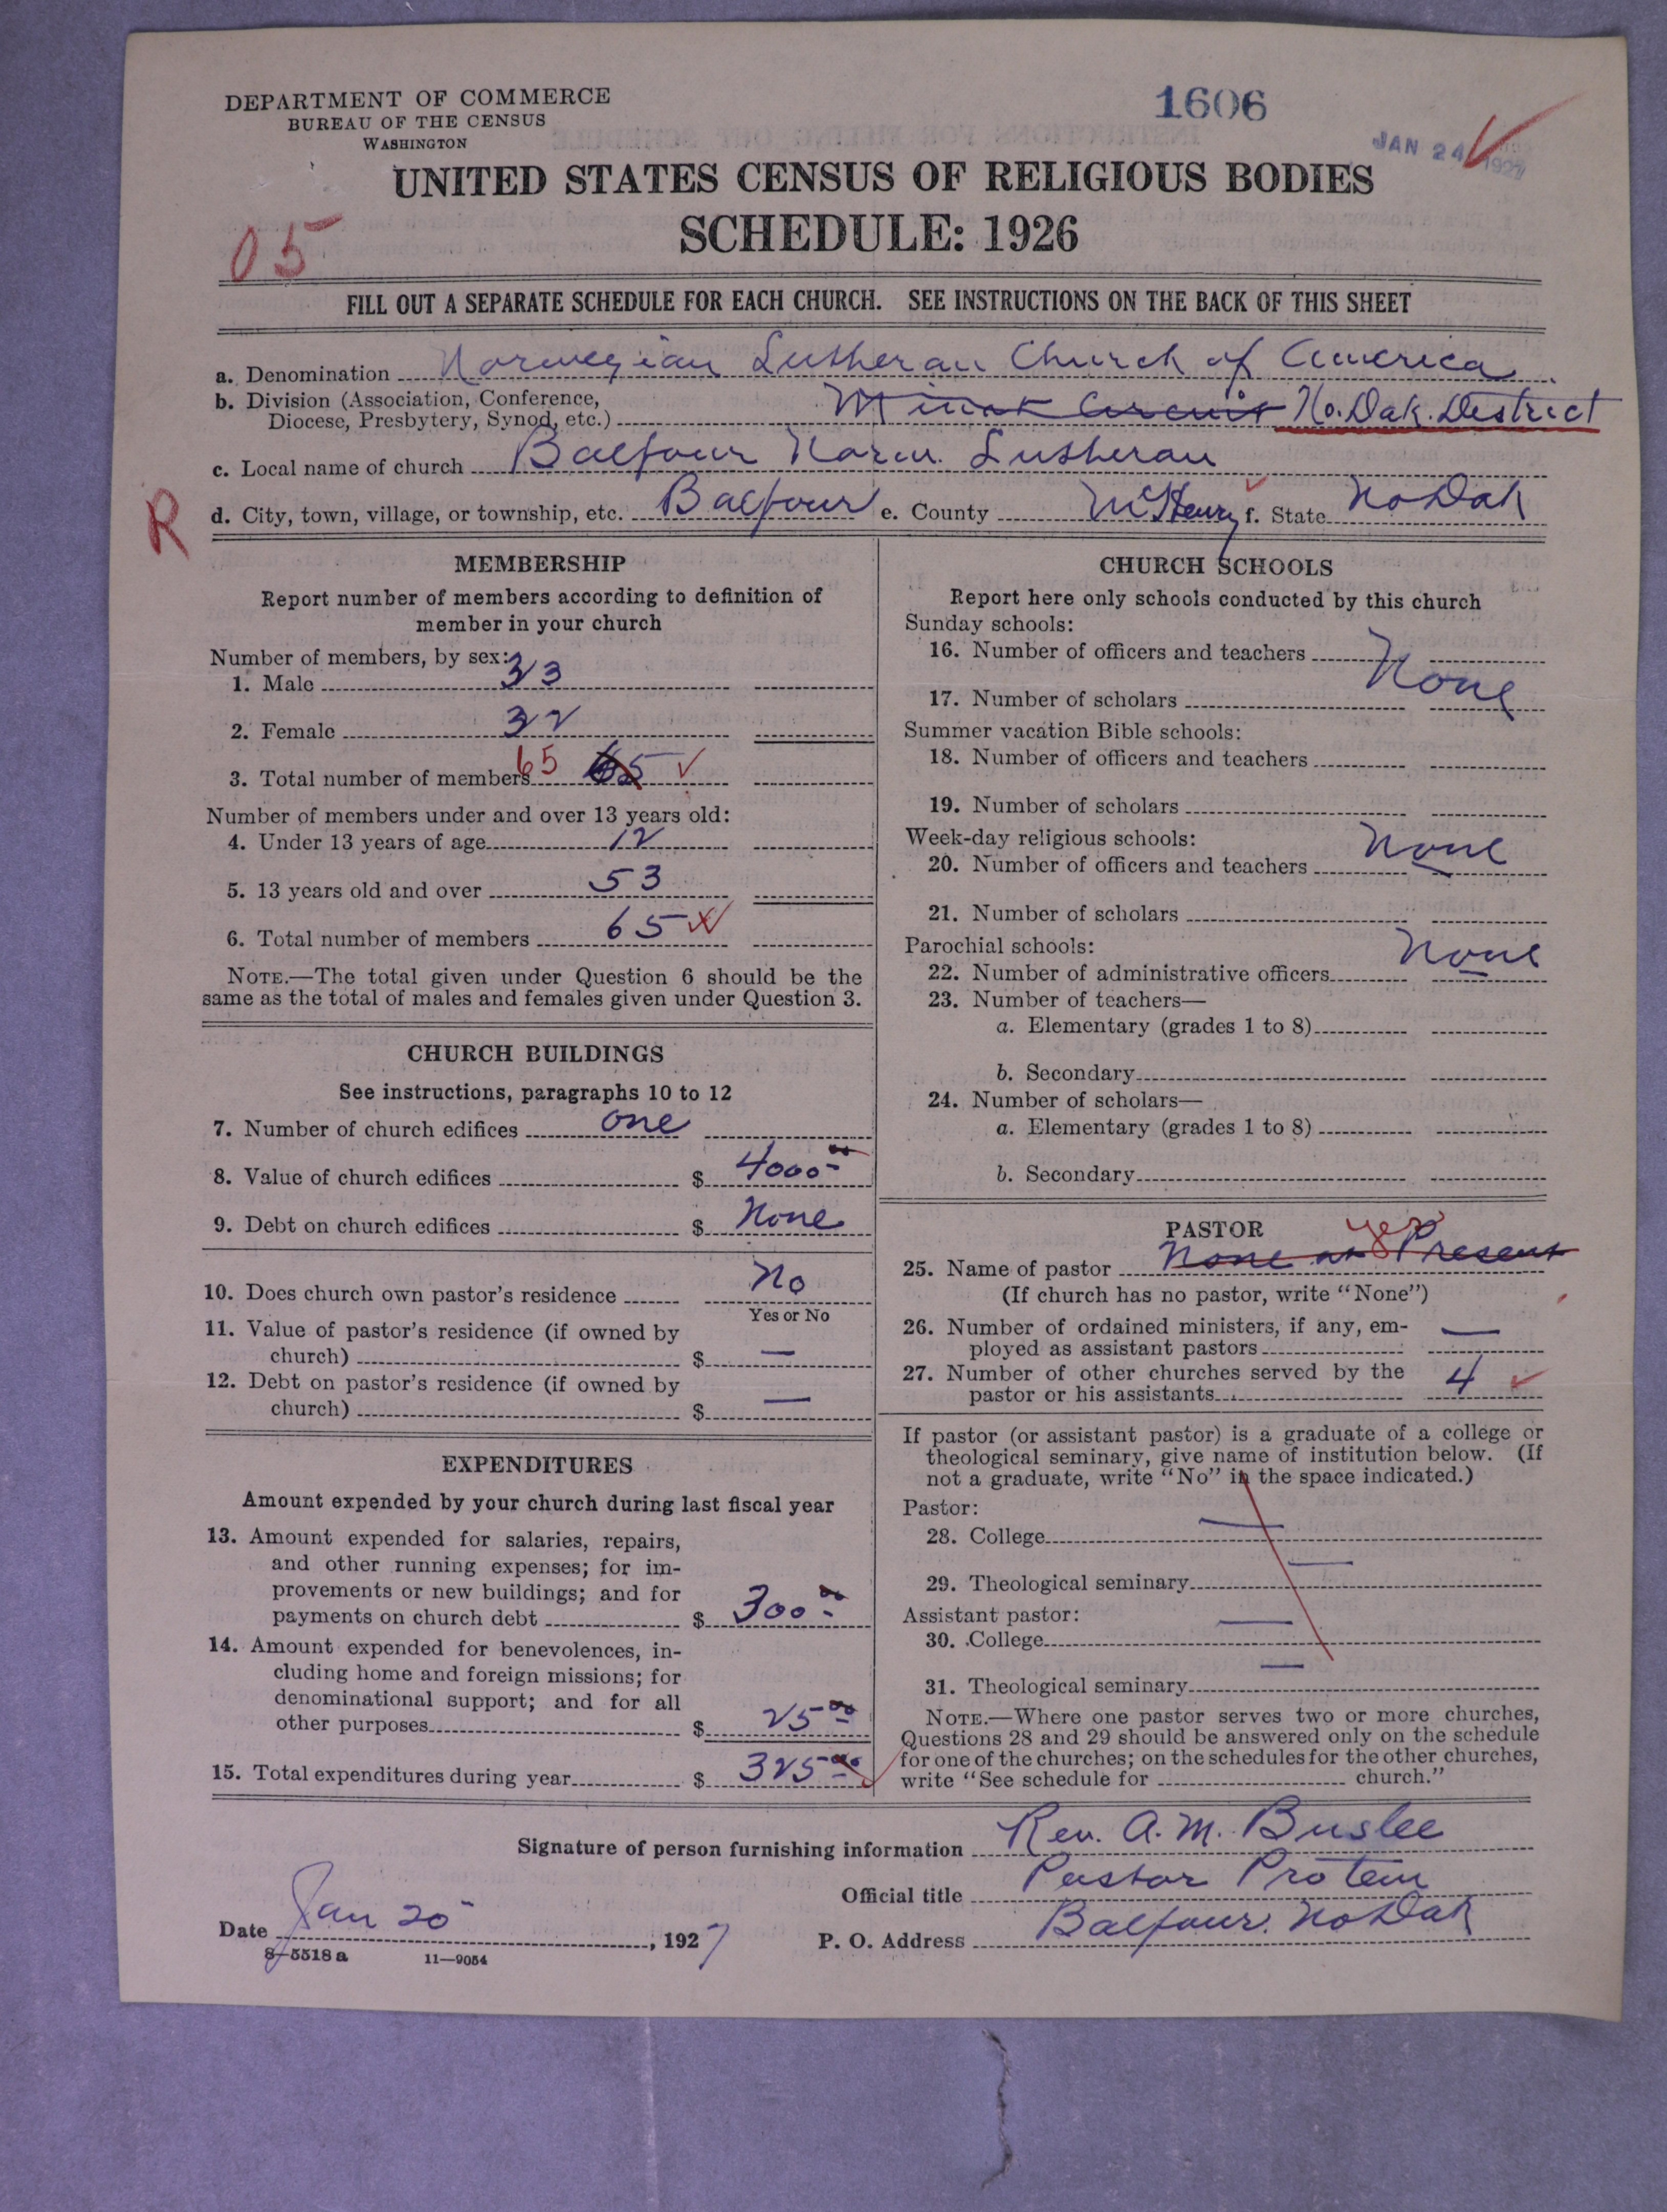 DEPARTMENT OF COMMERCE
BUREAU OF THE CENSUS
WASHINGTON
1606
JAN 24 1927
UNITED STATES CENSUS OF RELIGIOUS BODIES
SCHEDULE: 1926
05
FILL OUT A SEPARATE SCHEDULE FOR EACH CHURCH. SEE INSTRUCTIONS ON THE BACK OF THIS SHEET
a. Denomination Norwegian Lutheran Church of America
b. Division (Association, Conference, Diocese, Presbytery, Synod, etc.) Minot Circuit No. Dak. District
c. Local name of church Balfour Norw. Lutheran
R
d. City, town, village, or township, etc. Balfour e. County McHenry f. State No Dak
MEMBERSHIP
Report number of members according to definition of
member in your church
Number of members, by sex:
1. Male 33
2. Female 32
3. Total number of members 65 65
Number of members under and over 13 years old:
4. Under 13 years of age 12
5. 13 years old and over 53
6. Total number of members 65
NOTE.—The total given under Question 6 should be the
same as the total of males and females given under Question 3.
CHURCH BUILDINGS
See instructions, paragraphs 10 to 12
7. Number of church edifices one
8. Value of church edifices $ 4000 00
9. Debt on church edifices $ None
10. Does church own pastor's residence No
Yes or No
11. Value of pastor's residence (if owned by
church) $ —
12. Debt on pastor's residence (if owned by
church) $ —
EXPENDITURES
Amount expended by your church during last fiscal year
13. Amount expended for salaries, repairs,
and other running expenses; for im-
provements or new buildings; and for
payments on church debt $ 300 00
14. Amount expended for benevolences, in-
cluding home and foreign missions; for
denominational support; and for all
other purposes $ 25 00
15. Total expenditures during year $ 325 00
CHURCH SCHOOLS
Report here only schools conducted by this church
Sunday schools:
16. Number of officers and teachers
None
17. Number of scholars
Summer vacation Bible schools:
18. Number of officers and teachers
19. Number of scholars
Week-day religious schools:
20. Number of officers and teachers None
21. Number of scholars
Parochial schools:
22. Number of administrative officers None
23. Number of teachers—
a. Elementary (grades 1 to 8)
b. Secondary
24. Number of scholars—
a. Elementary (grades 1 to 8)
b. Secondary
PASTOR
yes
25. Name of pastor None at Present
(If church has no pastor, write "None")
26. Number of ordained ministers, if any, em-
ployed as assistant pastors —
27. Number of other churches served by the
pastor or his assistants 4
If pastor (or assistant pastor) is a graduate of a college or
theological seminary, give name of institution below. (If
not a graduate, write "No" in the space indicated.)
Pastor:
28. College —
29. Theological seminary —
Assistant pastor:
30. College —
31. Theological seminary —
NOTE.—Where one pastor serves two or more churches,
Questions 28 and 29 should be answered only on the schedule
for one of the churches; on the schedules for the other churches,
write "See schedule for church."
Signature of person furnishing information Rev. A. M. Buslee
Official title Pastor Protem
Date Jan 20 , 1927
P. O. Address Balfour. No Dak
8—5518a 11—9054